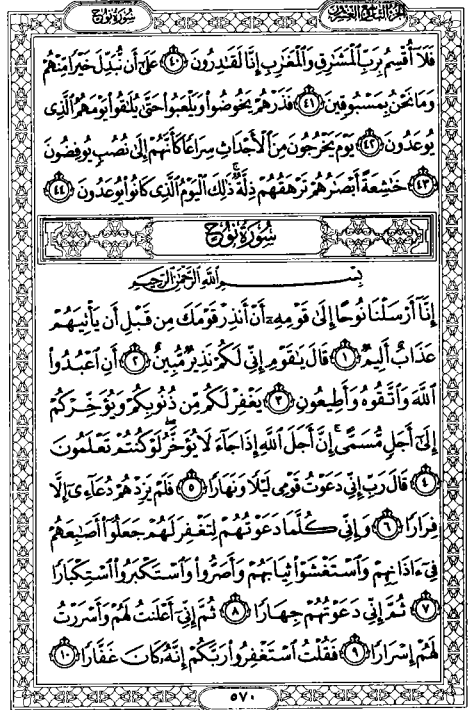 سُورَةُ نُوح
الجزء التاسع والعشرون
فَلَا أُقْسِمُ بِرَبِّ الْمَشَارِقِ وَالْمَغَارِبِ إِنَّا لَقَادِرُونَ ٤٠ عَلَىٰ أَن نُّبَدِّلَ خَيْرًا مِّنْهُمْ
وَمَا نَحْنُ بِمَسْبُوقِينَ ٤١ فَذَرْهُمْ يَخُوضُوا وَيَلْعَبُوا حَتَّىٰ يُلَاقُوا يَوْمَهُمُ الَّذِى
يُوعَدُونَ ٤٢ يَوْمَ يَخْرُجُونَ مِنَ الْأَجْدَاثِ سِرَاعًا كَأَنَّهُمْ إِلَىٰ نُصُبٍ يُوفِضُونَ
٤٣ خَاشِعَةً أَبْصَارُهُمْ تَرْهَقُهُمْ ذِلَّةٌ ۚ ذَٰلِكَ الْيَوْمُ الَّذِى كَانُوا يُوعَدُونَ ٤٤
سُورَةُ نُوح
بِسْمِ اللَّهِ الرَّحْمَٰنِ الرَّحِيمِ
إِنَّا أَرْسَلْنَا نُوحًا إِلَىٰ قَوْمِهِۦ أَنْ أَنذِرْ قَوْمَكَ مِن قَبْلِ أَن يَأْتِيَهُمْ
عَذَابٌ أَلِيمٌ ١ قَالَ يَاقَوْمِ إِنِّى لَكُمْ نَذِيرٌ مُّبِينٌ ٢ أَنِ اعْبُدُوا
اللَّهَ وَاتَّقُوهُ وَأَطِيعُونِ ٣ يَغْفِرْ لَكُم مِّن ذُنُوبِكُمْ وَيُؤَخِّرْكُمْ
إِلَىٰ أَجَلٍ مُّسَمًّى ۚ إِنَّ أَجَلَ اللَّهِ إِذَا جَاءَ لَا يُؤَخَّرُ ۖ لَوْ كُنتُمْ تَعْلَمُونَ
٤ قَالَ رَبِّ إِنِّى دَعَوْتُ قَوْمِى لَيْلًا وَنَهَارًا ٥ فَلَمْ يَزِدْهُمْ دُعَاءِى إِلَّا
فِرَارًا ٦ وَإِنِّى كُلَّمَا دَعَوْتُهُمْ لِتَغْفِرَ لَهُمْ جَعَلُوا أَصَابِعَهُمْ
فِى ءَاذَانِهِمْ وَاسْتَغْشَوْا ثِيَابَهُمْ وَأَصَرُّوا وَاسْتَكْبَرُوا اسْتِكْبَارًا
٧ ثُمَّ إِنِّى دَعَوْتُهُمْ جِهَارًا ٨ ثُمَّ إِنِّى أَعْلَنتُ لَهُمْ وَأَسْرَرْتُ
لَهُمْ إِسْرَارًا ٩ فَقُلْتُ اسْتَغْفِرُوا رَبَّكُمْ إِنَّهُۥ كَانَ غَفَّارًا ١٠
٥٧٠